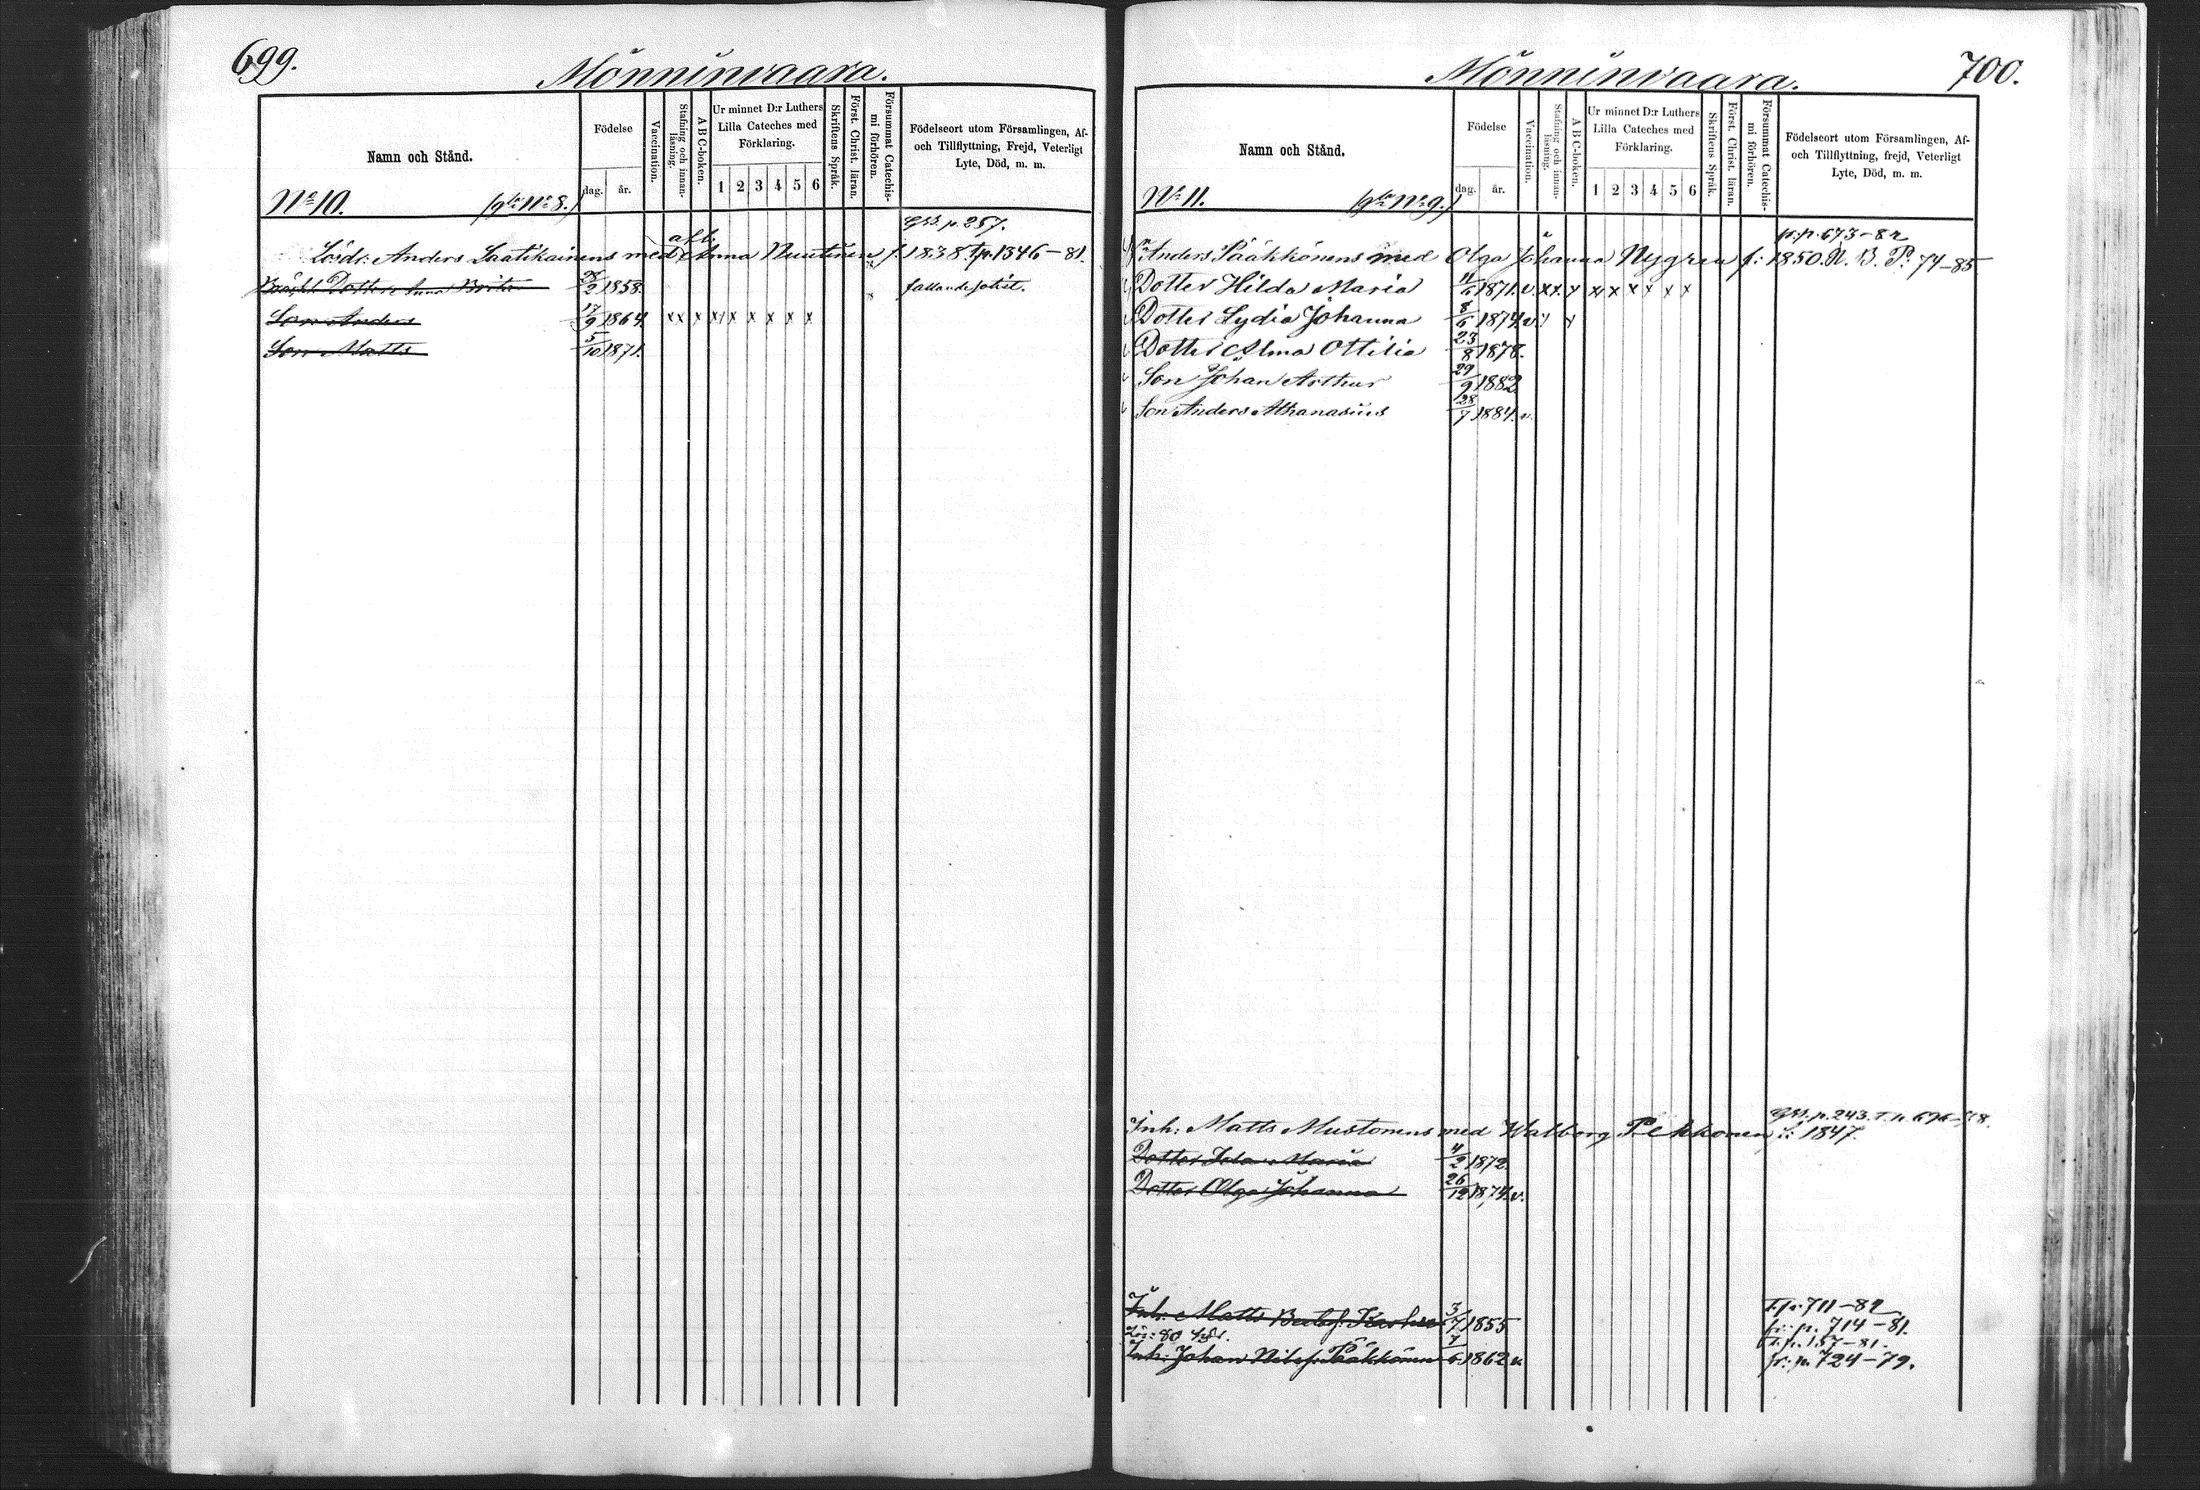 699.
Mönninvaara.
Namn och Stånd.
Födelse
dag. år.
Vaccination.
Stafning och innanläsning.
A B C-boken.
Ur minnet D:r Luthers Lilla Cateches med Förklaring.
1 2 3 4 5 6
Skriftens Språk.
Först. Christ. läran.
Försummat Catechismi förhören.
Födelseort utom Församlingen, Af- och Tillflyttning, Frejd, Veterligt Lyte, Död, m. m.
N:o 10. (gla N:o 8.)
p. 257.
Anders Laatikainens med Anna Nuutinen f. 1838. Tp. 1346–81.
Dotter Anna Brita 2 1858. fallandesotist.
Son Anders 17/9 1864. x x x x x x x x x
Son Matts 5/10 1871.
700.
Mönninvaara.
Namn och Stånd.
Födelse
dag. år.
Vaccination.
Stafning och innanläsning.
A B C-boken.
Ur minnet D:r Luthers Lilla Cateches med Förklaring.
1 2 3 4 5 6
Skriftens Språk.
Först. Christ. läran.
Försummat Catechismi förhören.
Födelseort utom Församlingen, Af- och Tillflyttning, frejd, Veterligt Lyte, Död, m. m.
N:o 11. (gla N:o 9.)
p. 673–82
Anders Pääkkönens med Olga Johanna Nygren f: 1850. N. B. P: 74–85
Dotter Hilda Maria 11/6 1871. v. x x. x x x x x x x
Dotter Lydia Johanna 8/6 1874. v.
Dotter Alma Ottilia 23/8 1878.
Son Johan Arthur 29/9 1882
Son Anders Athanasius 28/7 1884. v.
p. 243. T. p. 696–78.
Inh: Matts Mustonens med Walborg Pekkonen f: 1847.
Dotter Ida Maria 11/2 1872
Dotter Olga Johanna 26/12 1874. v.
T. p. 711–82
Inh: Matts 3/7 1855 fr: p. 714–81.
T. p. 157–81.
Inh: Johan Nilsf. Pääkkönen 7/6 1862 v. fr: p. 724–79.